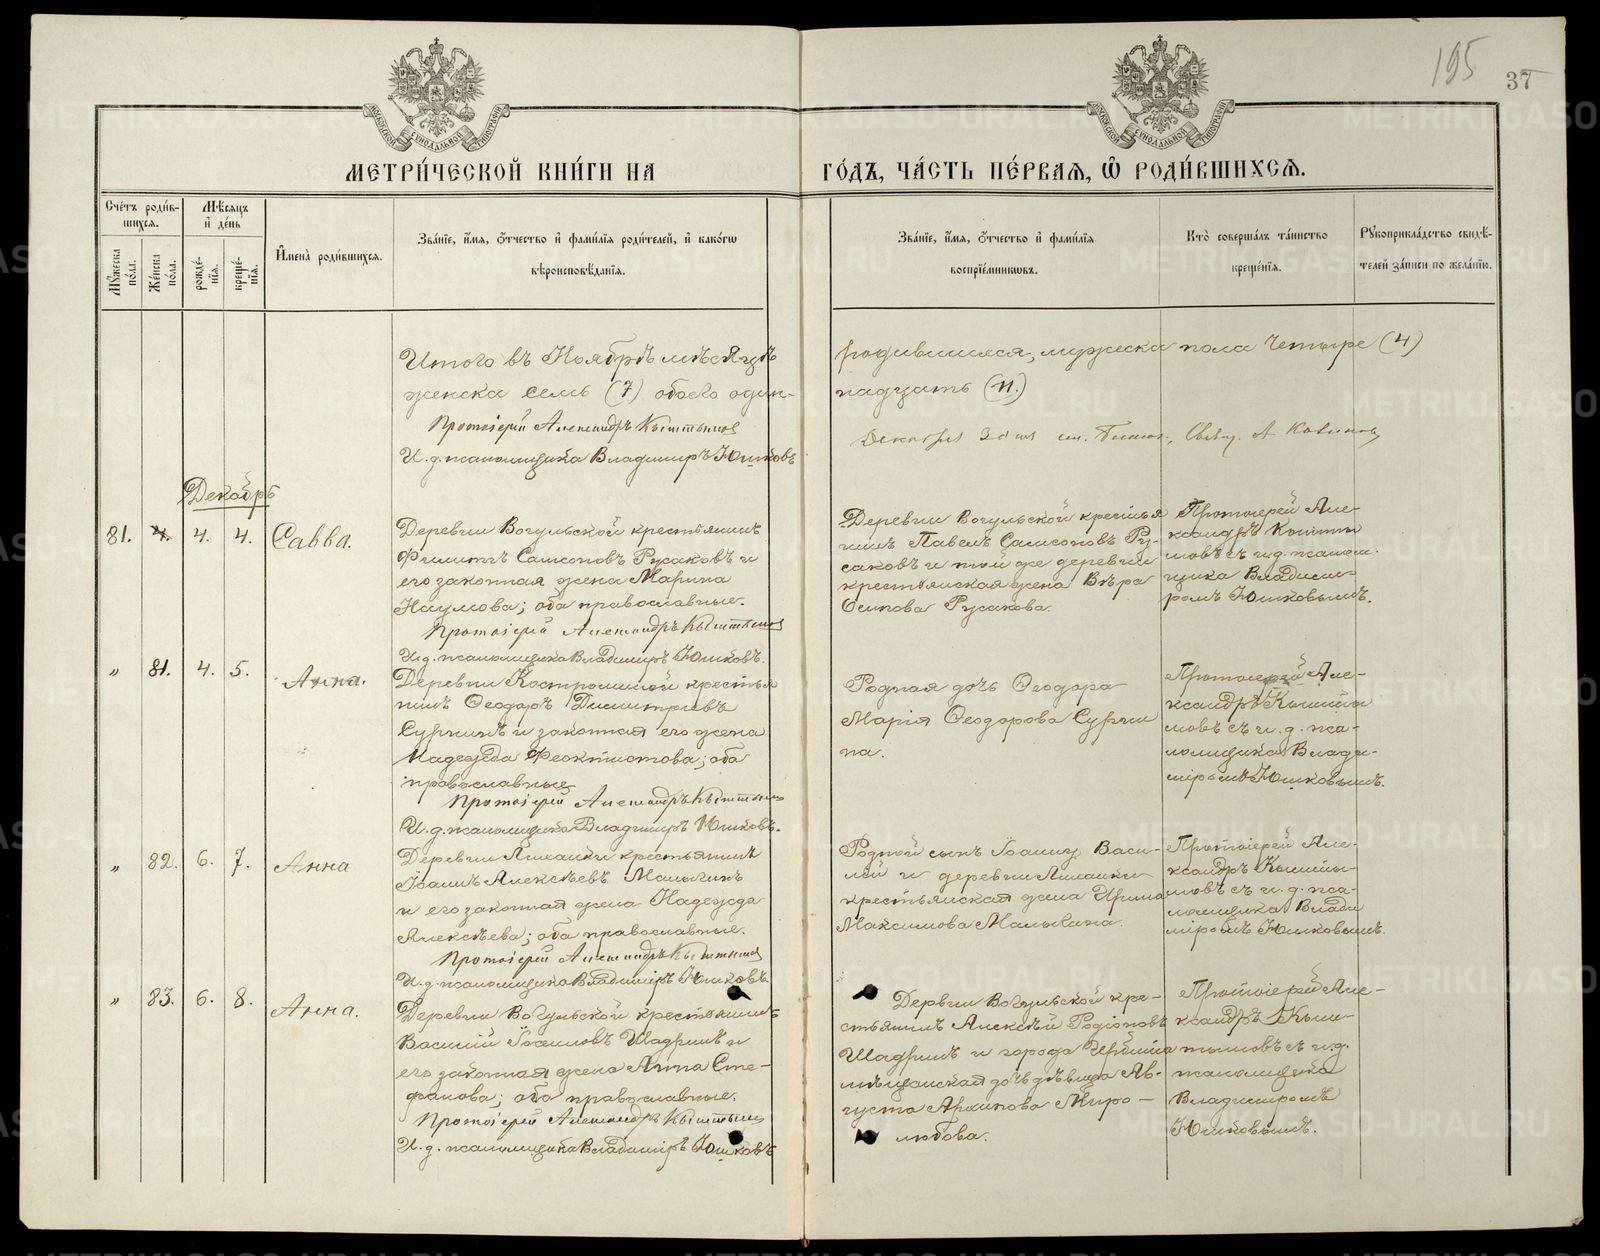 195
37
МЕТРИ́ЧЕСКОЙ КНИ́ГИ НА
ГО́ДЪ, ЧА́СТЬ ПЕ́РВАЯ, Ѡ҆ РОДИ́ВШИХСЯ.
Сче́тъ роди́в-
шихся.
Мꙋ́жеска
пола.
Же́нска
пола.
Мѣ́сяцъ
и҆ де́нь
рожде́-
нїя.
креще́-
нїя.
И҆мена̀ роди́вшихся.
Зва́нїе, и҆́мя, ѻ҆́тчество и҆ фами́лїя роди́телей, и҆ како́гѡ
вѣроисповѣ́данїя.
Зва́нїе, и҆́мя, ѻ҆́тчество и҆ фами́лїя
воспрїе́мникѡвъ.
Кто̀ соверша́лъ та́инство
креще́нїя.
Рꙋкоприкла́дство свидѣ́-
телей за́писи по жела́нїю.
Итого въ Ноябрѣ мѣсяцѣ
женска семь (7) обоего один-
Протоіерей Александръ Кыштымовъ
И. д. псаломщика Владиміръ Юшковъ
родившихся, мужеска пола четыре (4)
надцать (11.)
Декабрь
81. 4. 4. 4. Савва.
Деревни Вогульской крестьянинъ
Филиппъ Самсоновъ Русаковъ и
его законная жена Марина
Наумова; оба православные.
Протоіерей Александръ Кыштымовъ
И. д. псаломщика Владиміръ Юшковъ.
Деревни Вогульской крестья
нинъ Павелъ Самсоновъ Ру-
саковъ и той же деревни
крестьянская жена Вѣра
Осипова Русакова.
Протоіерей Але-
ксандръ Кышты
мовъ съ и. д. псалом-
щика Владими-
ромъ Юшковымъ.
„ 81. 4. 5. Анна.
Деревни Костроминой крестья
нинъ Ѳеодоръ Димитріевъ
Сургинъ и законная его жена
Надежда Феоктистова; оба
православные
Протоіерей Александръ Кыштымовъ
И. д. псаломщика Владиміръ Юшковъ.
Родная дочь Ѳеодора
Марія Ѳеодорова Сурги
на.
Протоіерей Але-
ксандръ Кышты
мовъ съ и. д. пса-
ломщика Влади-
міромъ Юшковымъ.
„ 82. 6. 7. Анна
Деревни крестьянинъ
Іоаннъ Алексѣевъ Малыгинъ
и его законная жена Надежда
Алексѣева; оба православные.
Протоіерей Александръ Кыштымовъ
И. д. псаломщика Владиміръ Юшковъ.
Родной сынъ Іоанну Васи-
лій и деревни
крестьянская жена Ирина
Максимова Малыгина.
Протоіерей Але-
ксандръ Кышты-
мовъ съ и. д. пса-
ломщика Влади
міромъ Юшковымъ.
„ 83. 6. 8. Анна.
Деревни Вогульской крестьянинъ
Василій Іоанновъ Шадринъ и
его законная жена Анна Сте-
фанова; оба православные.
Протоіерей Александръ Кыштымовъ
И. д. псаломщика Владиміръ Юшковъ
Деревни Вогульской кре-
стьянинъ Алексѣй Родіоновъ
Шадринъ и города Ирбита
мѣщанская дочь дѣвица Ав-
густа Архипова Миро-
любова.
Протоіерей Але-
ксандръ Кыш-
тымовъ съ и.д.
псаломщика
Владиміромъ
Юшковымъ.